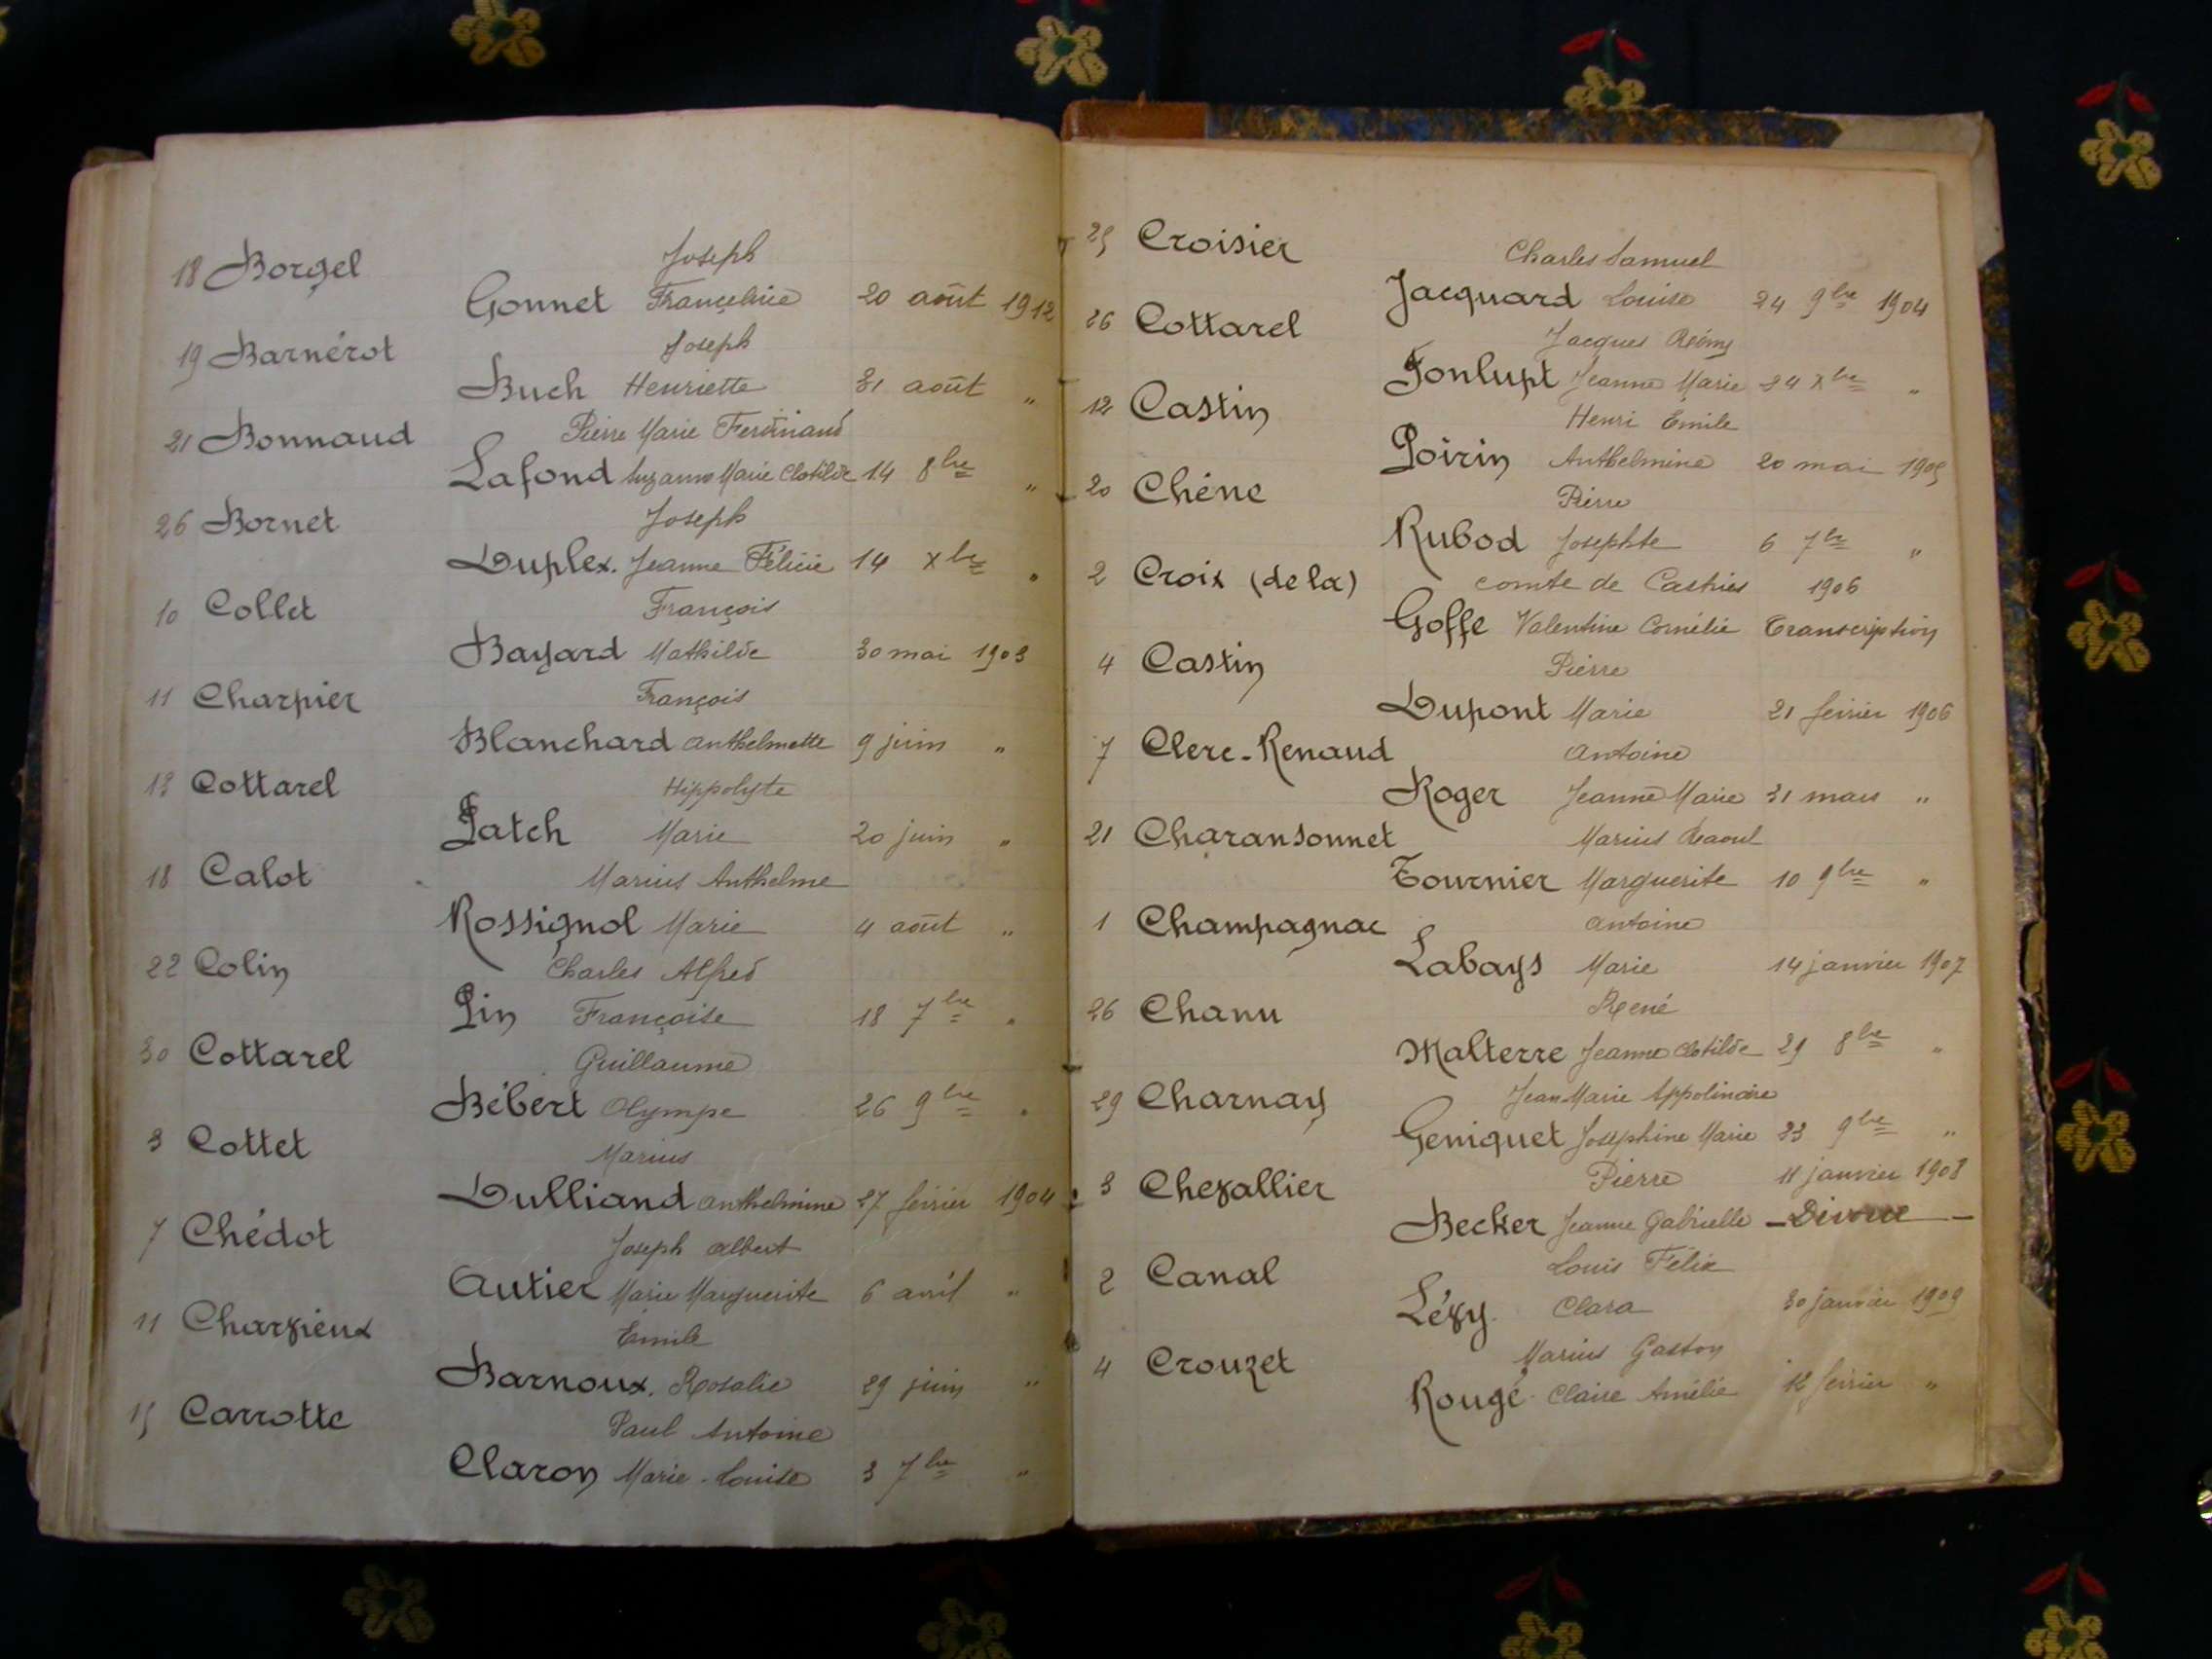 18 Borgel Joseph
Gonnet Françeline 20 août 1912
19 Barnérot Joseph
Buch Henriette 31 août "
21 Bonnaud Pierre Marie Ferdinand
Lafond Suzanne Marie Clotilde 14 8bre "
26 Bornet Joseph
Duplex. Jeanne Félicie 14 Xbre "
10 Collet François
Bayard Mathilde 30 mai 1903
11 Charpier François
Blanchard Anthelmette 9 juin "
13 Cottarel Hippolyte
Patch Marie 20 juin "
18 Calot Marius Anthelme
Rossignol Marie 4 août "
22 Colin Charles Alfred
Pin Françoise 18 7bre "
30 Cottarel Guillaume
Bébert Olympe 26 9bre "
3 Cottet Marius
Dulliand Anthelmine 27 février 1904
7 Chédot Joseph Albert
Autier Marie Marguerite 6 avril "
11 Charvieux Emile
Barnoux. Rosalie 29 juin "
15 Carrotte Paul Antoine
Claron Marie-Louise 3 7bre "
25 Croisier Charles Samuel
Jacquard Louise 24 9bre 1904
26 Cottarel Jacques Rémy
Fonlupt Jeanne Marie 24 Xbre "
12 Castin Henri Emile
Poirin Anthelmine 20 mai 1905
20 Chêne Pierre
Rubod Josephte 6 7bre "
2 Croix (de la) comte de Castries 1906
Goffe Valentine Cornélie Transcription
4 Castin Pierre
Dupont Marie 21 février 1906
7 Clerc-Renaud Antoine
Roger Jeanne Marie 31 mars "
21 Charansonnet Marius Raoul
Tournier Marguerite 10 9bre "
1 Champagnac Antoine
Labays Marie 14 janvier 1907
26 Chanu René
Malterre Jeanne Clotilde 29 8bre "
29 Charnay Jean Marie Appolinaire
Geniquet Joséphine Marie 23 9bre "
3 Chevallier Pierre 11 janvier 1908
Becker Jeanne Gabrielle - Divorce -
2 Canal Louis Félix
Lévy. Clara 30 janvier 1909
4 Crouzet Marius Gaston
Rougé. Claire Amélie 12 février "